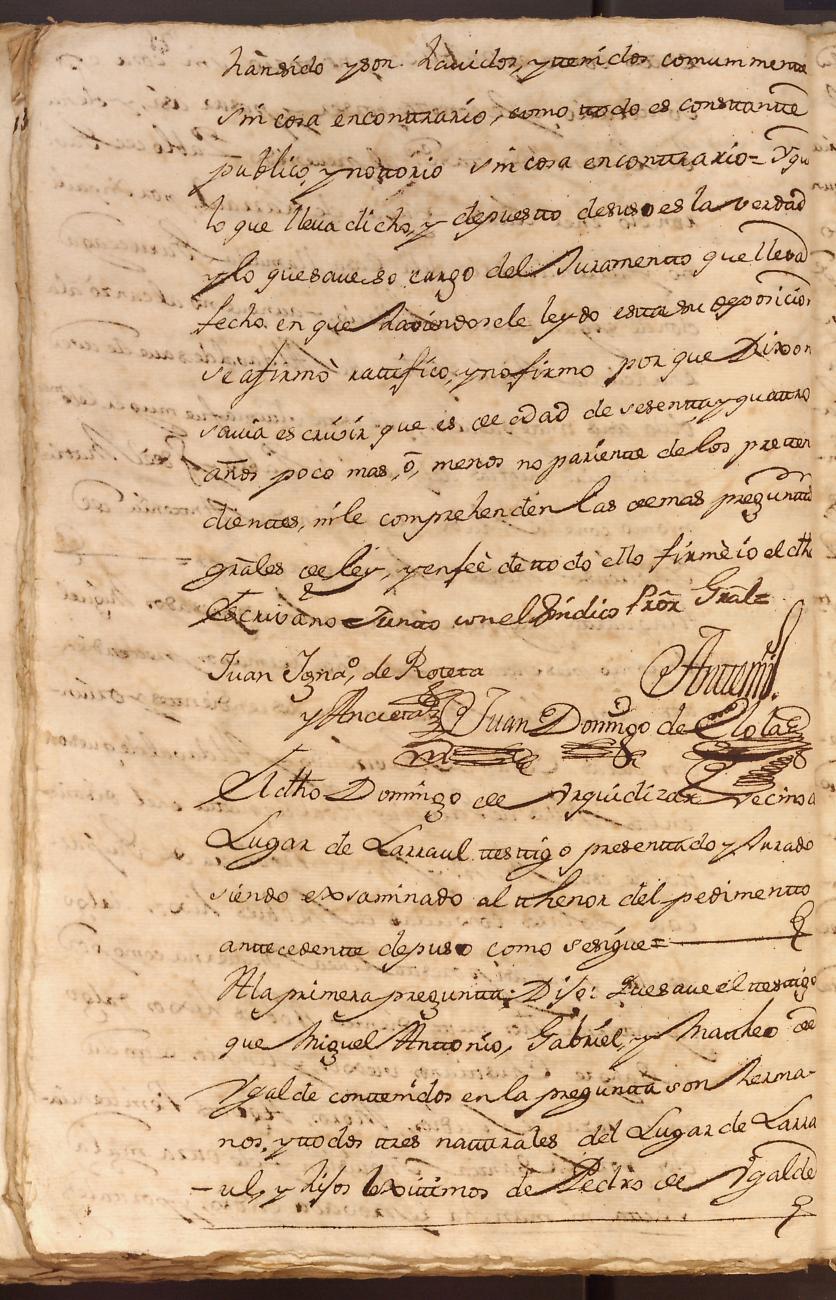 hansido yson havidos, yttenidos comummente
sin cosa enconttrario, como ttodo es consttantte
publico, ynottorio sin cosa enconttrario= Yque
lo que lleva dicho, y depuestto desuso es la verdad
ylo quesave so cargo del Juramentto que lleva
fecho. en que haviendosele leydo estta su deposicion
se afirmò rattifico, yno firmo por que Dixo no
savia escrivir, que es de edad de sesentta y quattro
años poco mas, ô, menos no pariente de los pretten
dienttes, nile comprehenden las demas preguntas
grâles de ley, y enfeè de ttodo ello firmè io el dho
Escrivano Juntto con el Sindico Prôr Gral=
Juan Ygnaº. de Rotetta
y Ancieta
Anttemi
Juan Domingo de Elola
El dho Domingo de Arquidizar Vecino
Lugar de Larraul ttesttigo presenttado y Jurado
siendo exsaminado al tthenor del pedimentto
anttecedentte depuso como sesigue=
A la primera pregunta: Dijo: Quesave el ttesttigo
que Miguel Anttonio, Gabriel, y Mattheo de
Ygalde conttenidos en la pregunta son herma-
nos, yttodos ttres natturales del Lugar de Larra
-ul, y hijos lexittimos de Pedro de Ygalde